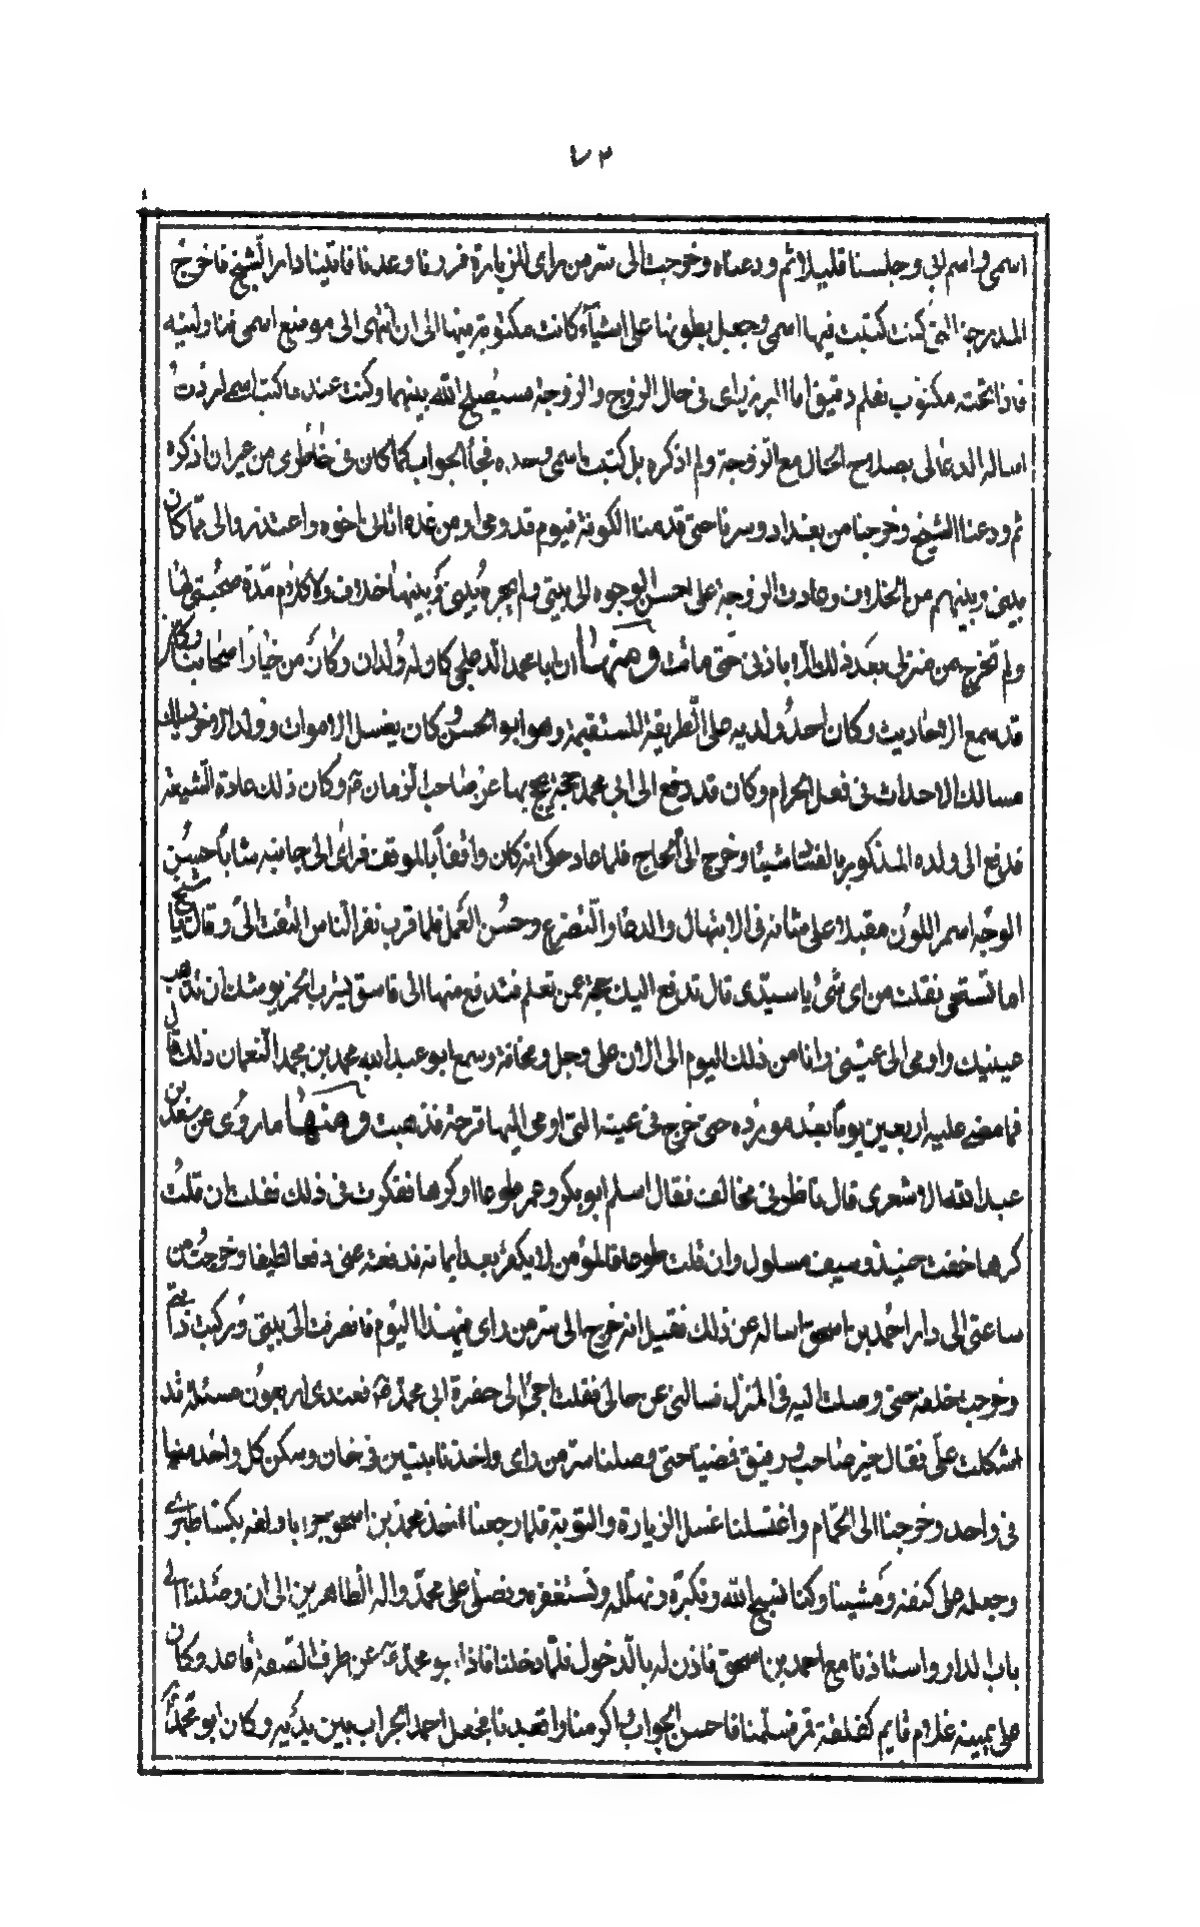 ٧٣
اسمی واسم ابی وجلسنا قلیلا ثم ودعناه وخرجت الی سر من رای للزیارة فزرنا وعدنا فاتینا دار الشیخ فاخرج
المدرجة التی کنت کتبت فیها اسمی وجعل یطویها علی اشیآء کانت مکتوبة فیها الی ان انتهی الی موضع اسمی فناولنیه
فاذا تحته مکتوب بقلم دقیق اما الزراری فی حال الزوج والزوجة سیصلح الله بینهما وکنت عند ما کتبت اسمی اردت
اساله الدعا لی بصلاح الحال مع الزوجة ولم اذکره بل کتبت اسمی وحده فجآ الجواب کما کان فی خاطری من غیر ان اذکره
ثم ودعنا الشیخ وخرجنا من بغداد وسرنا حتی قدمنا الکوفة فیوم قدومی او من غده اتانی اخوه واعتذر والی مما کان
بینی وبینهم من الخلاف وعادت الزوجة علی احسن الوجوه الی بیتی ولم یجر بینی وبینها خلاف ولا کلام مدة صحبتی لها
ولم تخرج من منزلی بعد ذلک الا باذنی حتی ماتت ومنها ان ابا محمد الدعلجی کان له ولدان وکان من خیار اصحابنا وکان
قد سمع الاحادیث وکان احد ولدیه علی الطریقة المستقیمة وهو ابو الحسن وکان یغسل الاموات وولد الاخر یسلک
مسالک الاحداث فی فعل الحرام وکان قد دفع الی ابی محمد حجة یحج بها عن صاحب الزمان ع وکان ذلک عادة الشیعة
فدفع الی ولده المذکور بالفسا شیئا وخرج الی الحاج فلما عاد حکی انه کان واقفا بالموقف فرای الی جانبه شابا حسن
الوجه اسمر اللون مقبلا علی شانه فی الابتهال والدعا والتضرع وحسن العمل فلما قرب نفر الناس التفت الی وقال یا شیخ
اما تستحی فقلت من ای شیٔ یا سیدی قال تدفع الیک حجة عمن تعلم فتدفع منها الی فاسق یشرب الخمر یوشک ان تذهب
عینیک واومی الی عینی وانا من ذلک الیوم الی الان علی وجل ومخافة وسمع ابو عبد الله محمد بن محمد النعمان ذلک قال
فما مضی علیه اربعین یوما بعد مورده حتی خرج فی عینه التی اومی الیها قرحة فذهبت ومنها ما روی عن سعد بن
عبد الله الاشعری قال ناظرنی مخالف فقال اسلم ابو بکر وعمر طوعا او کرها ففکرت فی ذلک فقلت ان قلت
کرها خفت حینئذ وسیف مسلول وان قلت طوعا فالمؤمن لا یکفر بعد ایمانه فدفعته عنی دفعا لطیفا وخرجت من
ساعتی الی دار احمد بن اسحق اساله عن ذلک فقیل انه خرج الی سر من رای فی هذا الیوم فانصرفت الی بیتی ورکبت دابتی
وخرجت خلفه حتی وصلت الیه فی المنزل فسالنی عن حالی فقلت اجیٔ الی حضرة ابی محمد ع فعندی اربعون مسئلة قد
اشکلت علی فقال خیر صاحب ورفیق فمضینا حتی وصلنا سر من رای واخذنا بیتین فی خان وسکن کل واحد منها
فی واحد وخرجنا الی الحمام واغتسلنا غسل الزیارة والتوبة فلما رجعنا اخذ محمد بن اسحق جرابا ولفه بکسا طبری
وجعله علی کتفه ومشینا وکنا نسبح الله ونکبره ونهلله ونستغفره ونصلی علی محمد واله الطاهرین الی ان وصلنا الی
باب الدار واستاذنا مع احمد بن اسحق فاذن له بالدخول فلما دخلنا فاذا ابو محمد ع عن طرف الصفة قاعد وکان
علی یمینه غلام قایم کفلقة قمر فسلمنا فاحسن الجواب اکرمنا واقعدنا فجعل احمد الجراب بین یدیه وکان ابو محمد